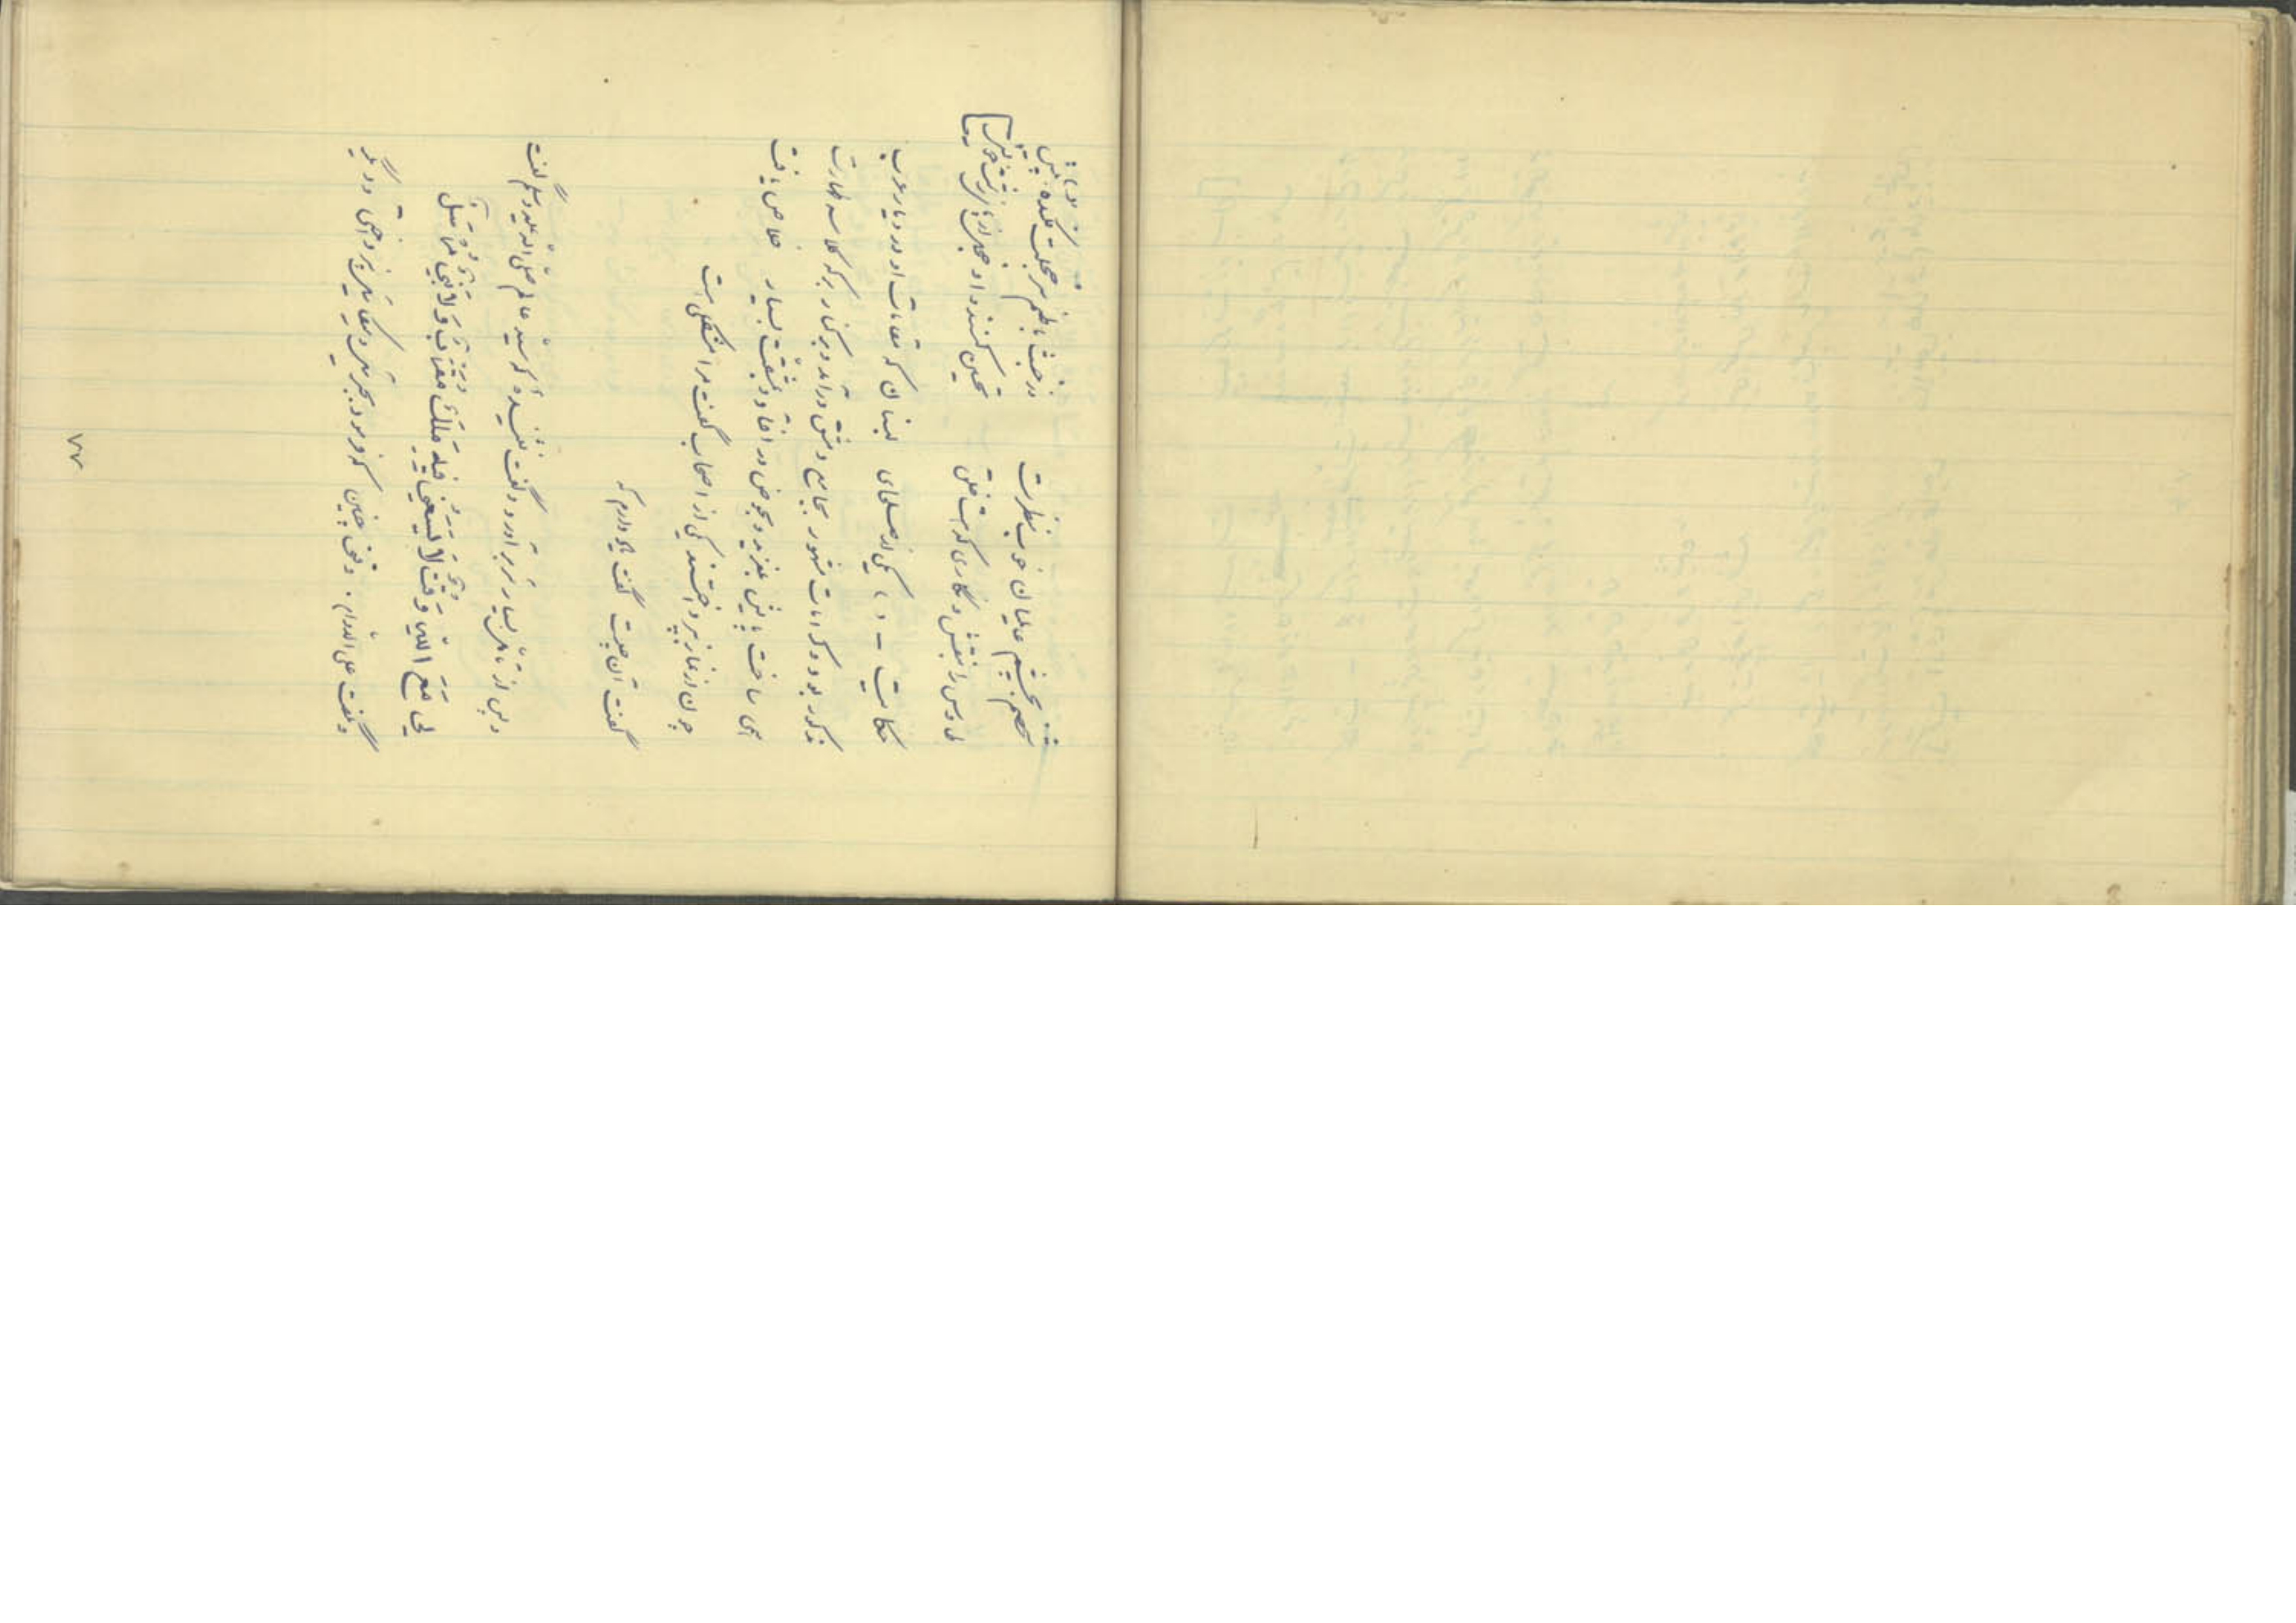 شخصم بچشم عالمیان خوب منظرست وز خبث باطنم سر خجلت فکنده پیش
طاوس را بنقش و نگاری که هست خلق تحسین کنند و او خجل از پای زشت خویش]
حکایت - یکی از صلحای لبنان که مقامات او در دیار عرب
مذکور بود و کرامات مشهور بجامع دمشق درآمد و بر کنار برکه کلاسه طهارت
همی ساخت پایش بلغزید و بحوض درافتاد و بمشقّت بسیار خلاص یافت
چون از نماز بپرداختند یکی از اصحاب گفت مرا مشکلی است
گفت آن چیست گفت یاد دارم که
و پس از تأمّل بسیار سر برآورد و گفت نشنیده که سید عالم صلّی الله علیه وسلّم گفت
لِی مَعَ اللّهِ وَقتٌ لا یَسَعُنِی فِیهِ مَلَکٌ مُقَرَّبٌ وَلا نَبِیٌّ مُرسَلٌ
و نگفت علی الدّوام. وقتی چنین که فرمود بجبرئیل و میکائیل نپرداختی و دیگر
٧٧